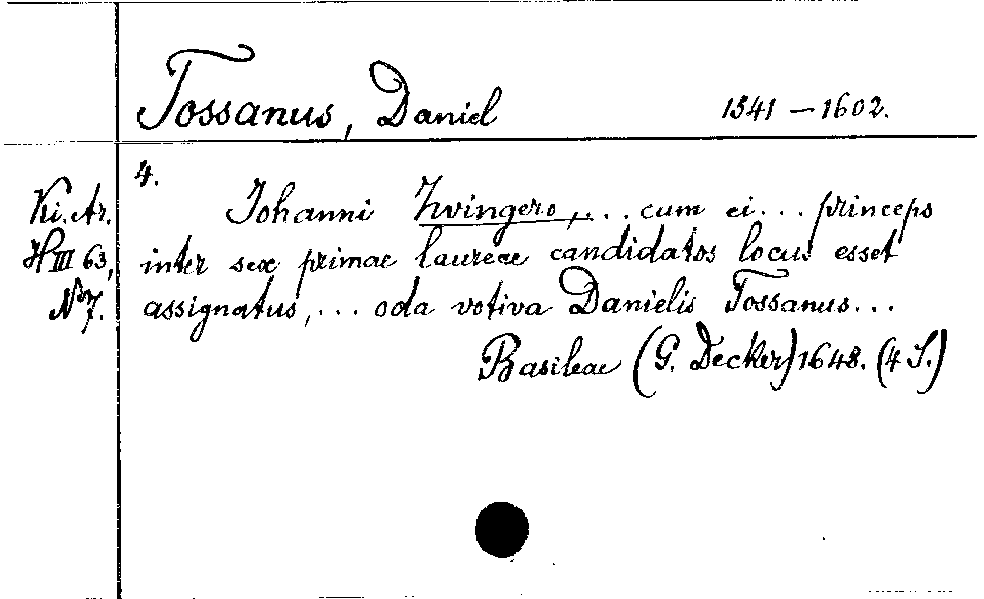 Tossanus, Daniel 1541 – 1602.
Ki. Ar.
H III 63,
No 7.
4.
Johanni Zwingero, ... cum ei ... princeps
inter sex primae laureae candidatos locus esset
assignatus, ... oda votiva Danielis Tossanus ...
Basileae (G. Decker) 1648. (4 S.)